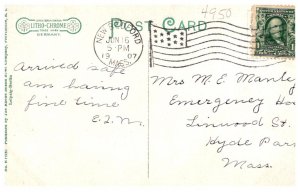 4950
POST CARD
LITHO-CHROME
GERMANY
NEW BEDFORD
JUN 16
5-PM
1907
MASS.
Arrived safe
am having
fine time
E.L.M.
Mrs M. E. Manley
Emergency Hos
Linwood St.
Hyde Par
Mass.